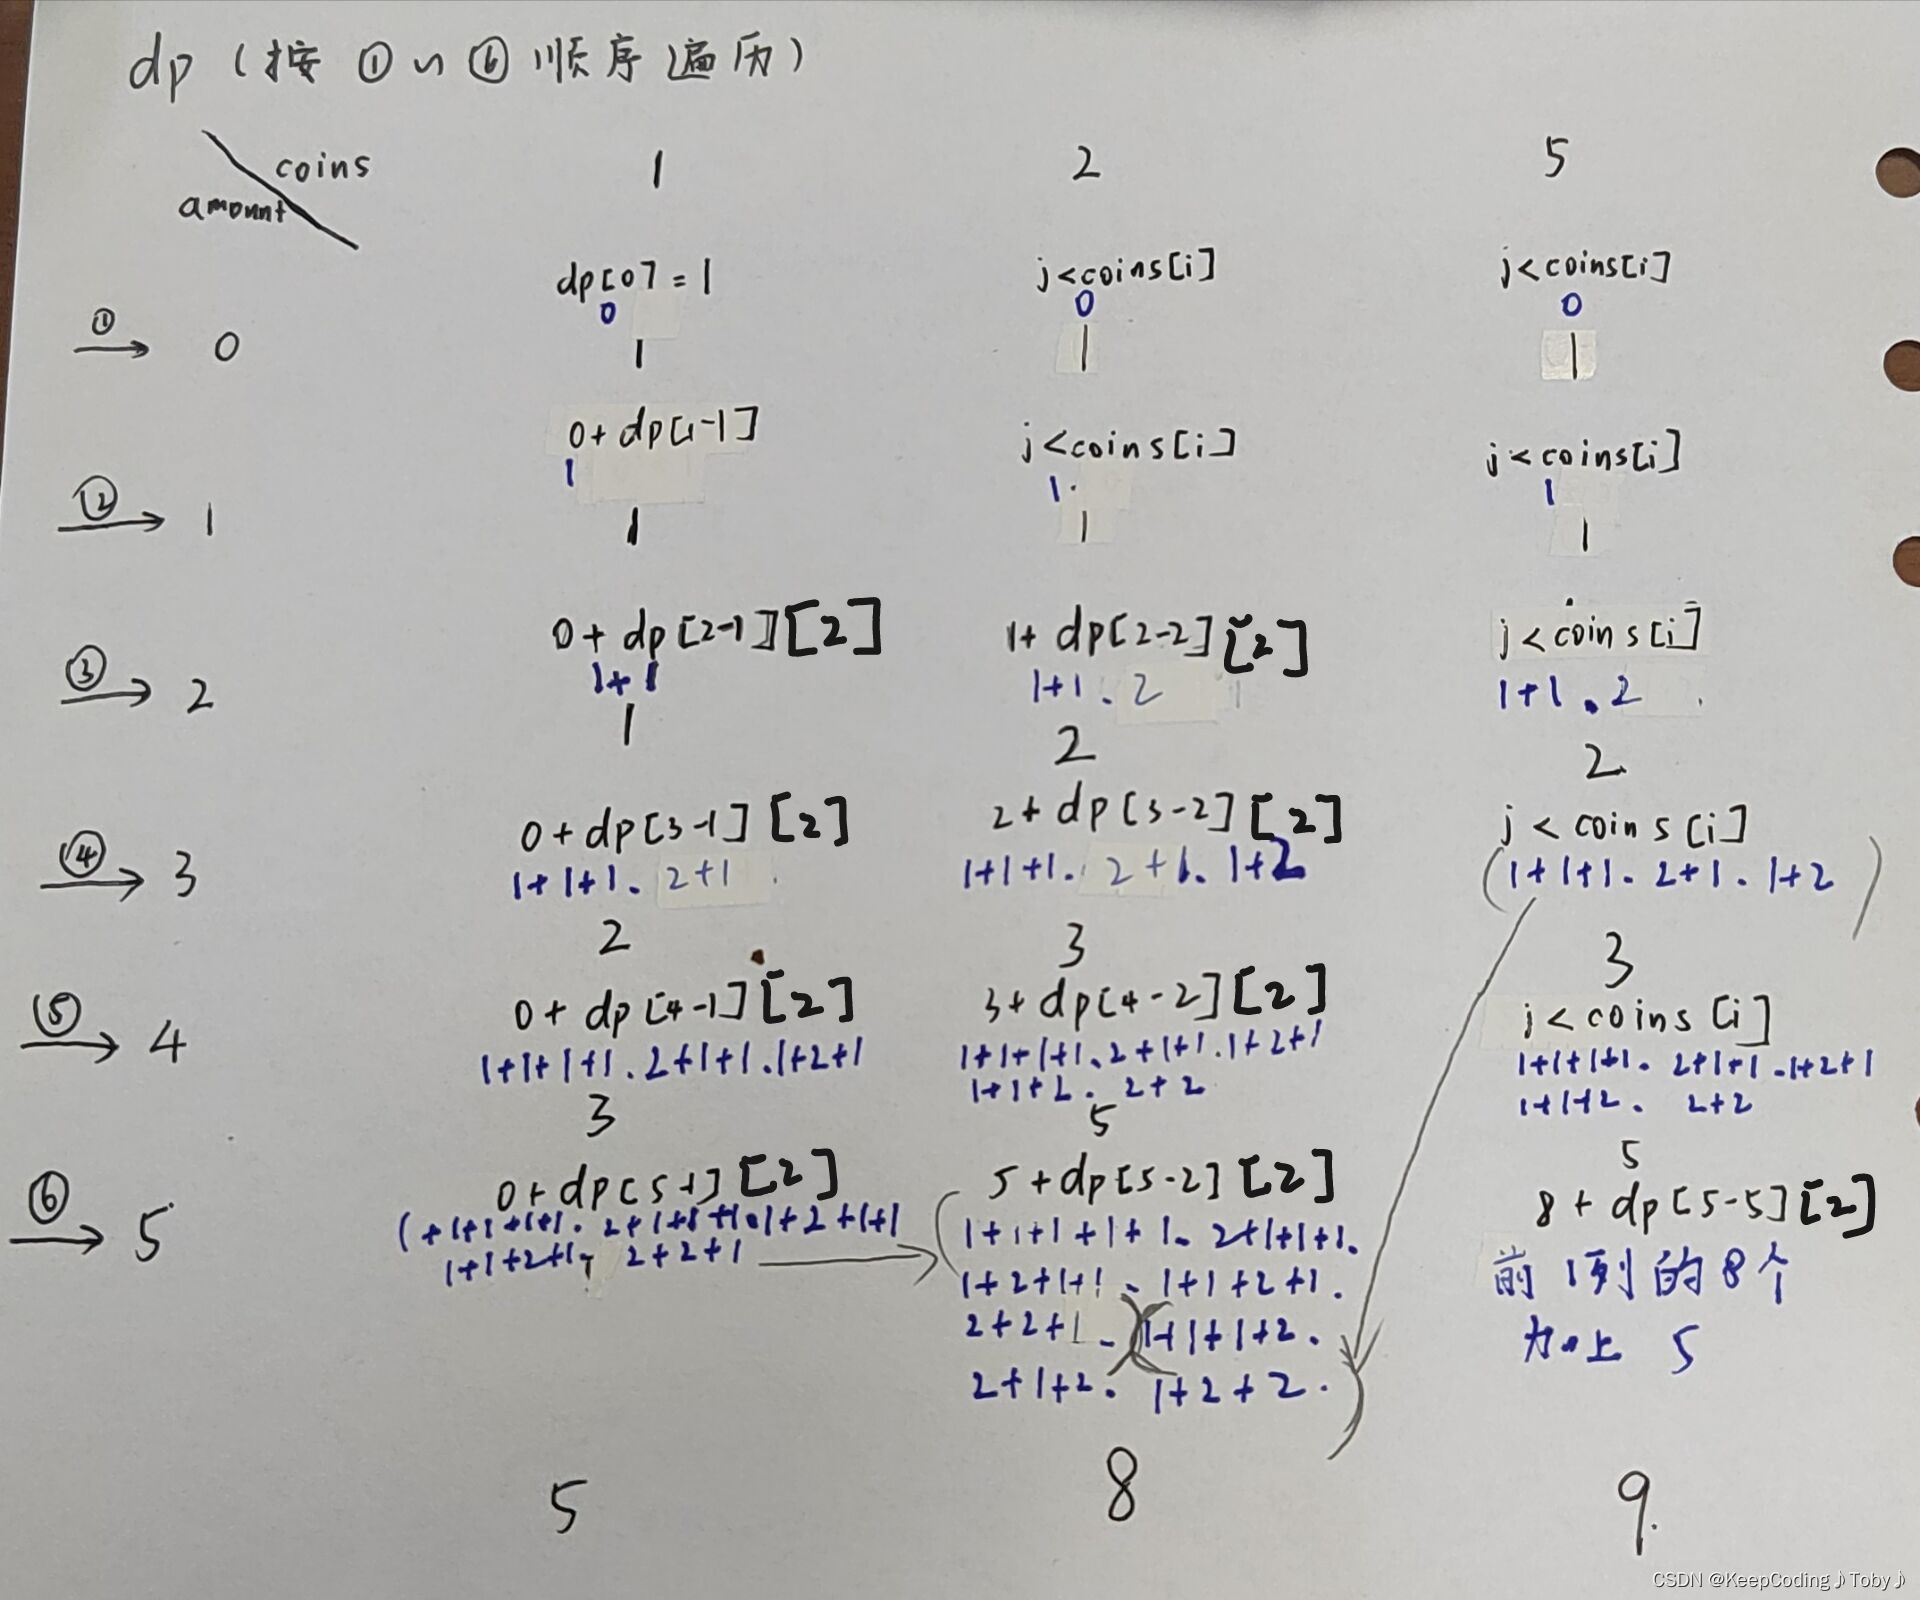 dp (按 ① ~ ⑥ 顺序遍历)
coins 1 2 5
amount
dp[0] = 1 j<coins[i] j<coins[i]
0 0 0
① 0
1 1 1
0+dp[1-1] j<coins[i] j<coins[i]
1 1. 1
② 1
1 1 1
0+dp[2-1][2] 1+dp[2-2][2] j<coins[i]
1+1 1+1.2 1+1.2
③ 2
1 2 2
0+dp[3-1][2] 2+dp[3-2][2] j<coins[i]
④ 3
1+1+1. 2+1 1+1+1. 2+1. 1+2 (1+1+1. 2+1. 1+2)
2 3 3
0+dp[4-1][2] 3+dp[4-2][2] j<coins[i]
⑤ 4
1+1+1+1.2+1+1.1+2+1 1+1+1+1.2+1+1.1+2+1 1+1+1+1. 2+1+1.1+2+1
1+1+2. 2+2 1+1+2. 2+2
3 5 5
0+dp[5-1][2] 5+dp[5-2][2] 8+dp[5-5][2]
⑥ 5
(1+1+1+1+1. 2+1+1+1.1+2+1+1 1+1+1+1+1. 2+1+1+1. 前1列的8个
1+1+2+1. 2+2+1 1+2+1+1. 1+1+2+1.
2+2+1.)(1+1+1+2. 加上 5
2+1+2. 1+2+2.)
5 8 9
CSDN @KeepCoding♪Toby♪